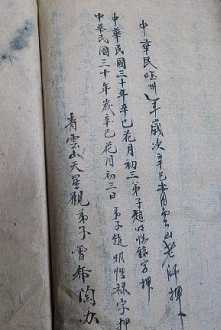 中華民國卅年歲次辛巳月雲山老師押
中華民國三十年辛巳花月初三弟子趙性錄字押
中華民國三十年歲辛巳花月初三日 弟子趙明性祿字押
青雲山天罡觀 弟子曾希陶办